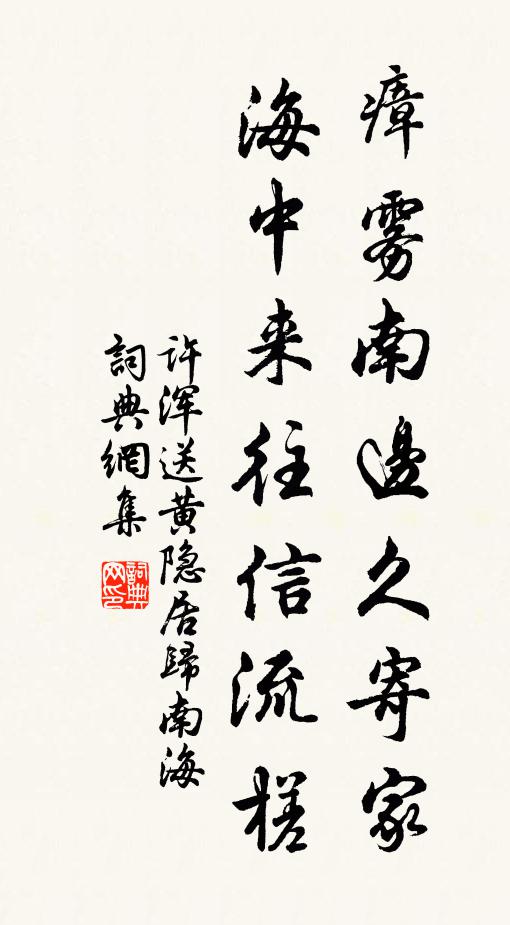 瘴雾南邊久寄家
海中来往信流槎
许渾送黄隐居歸南海
詞典網集
詞典网印